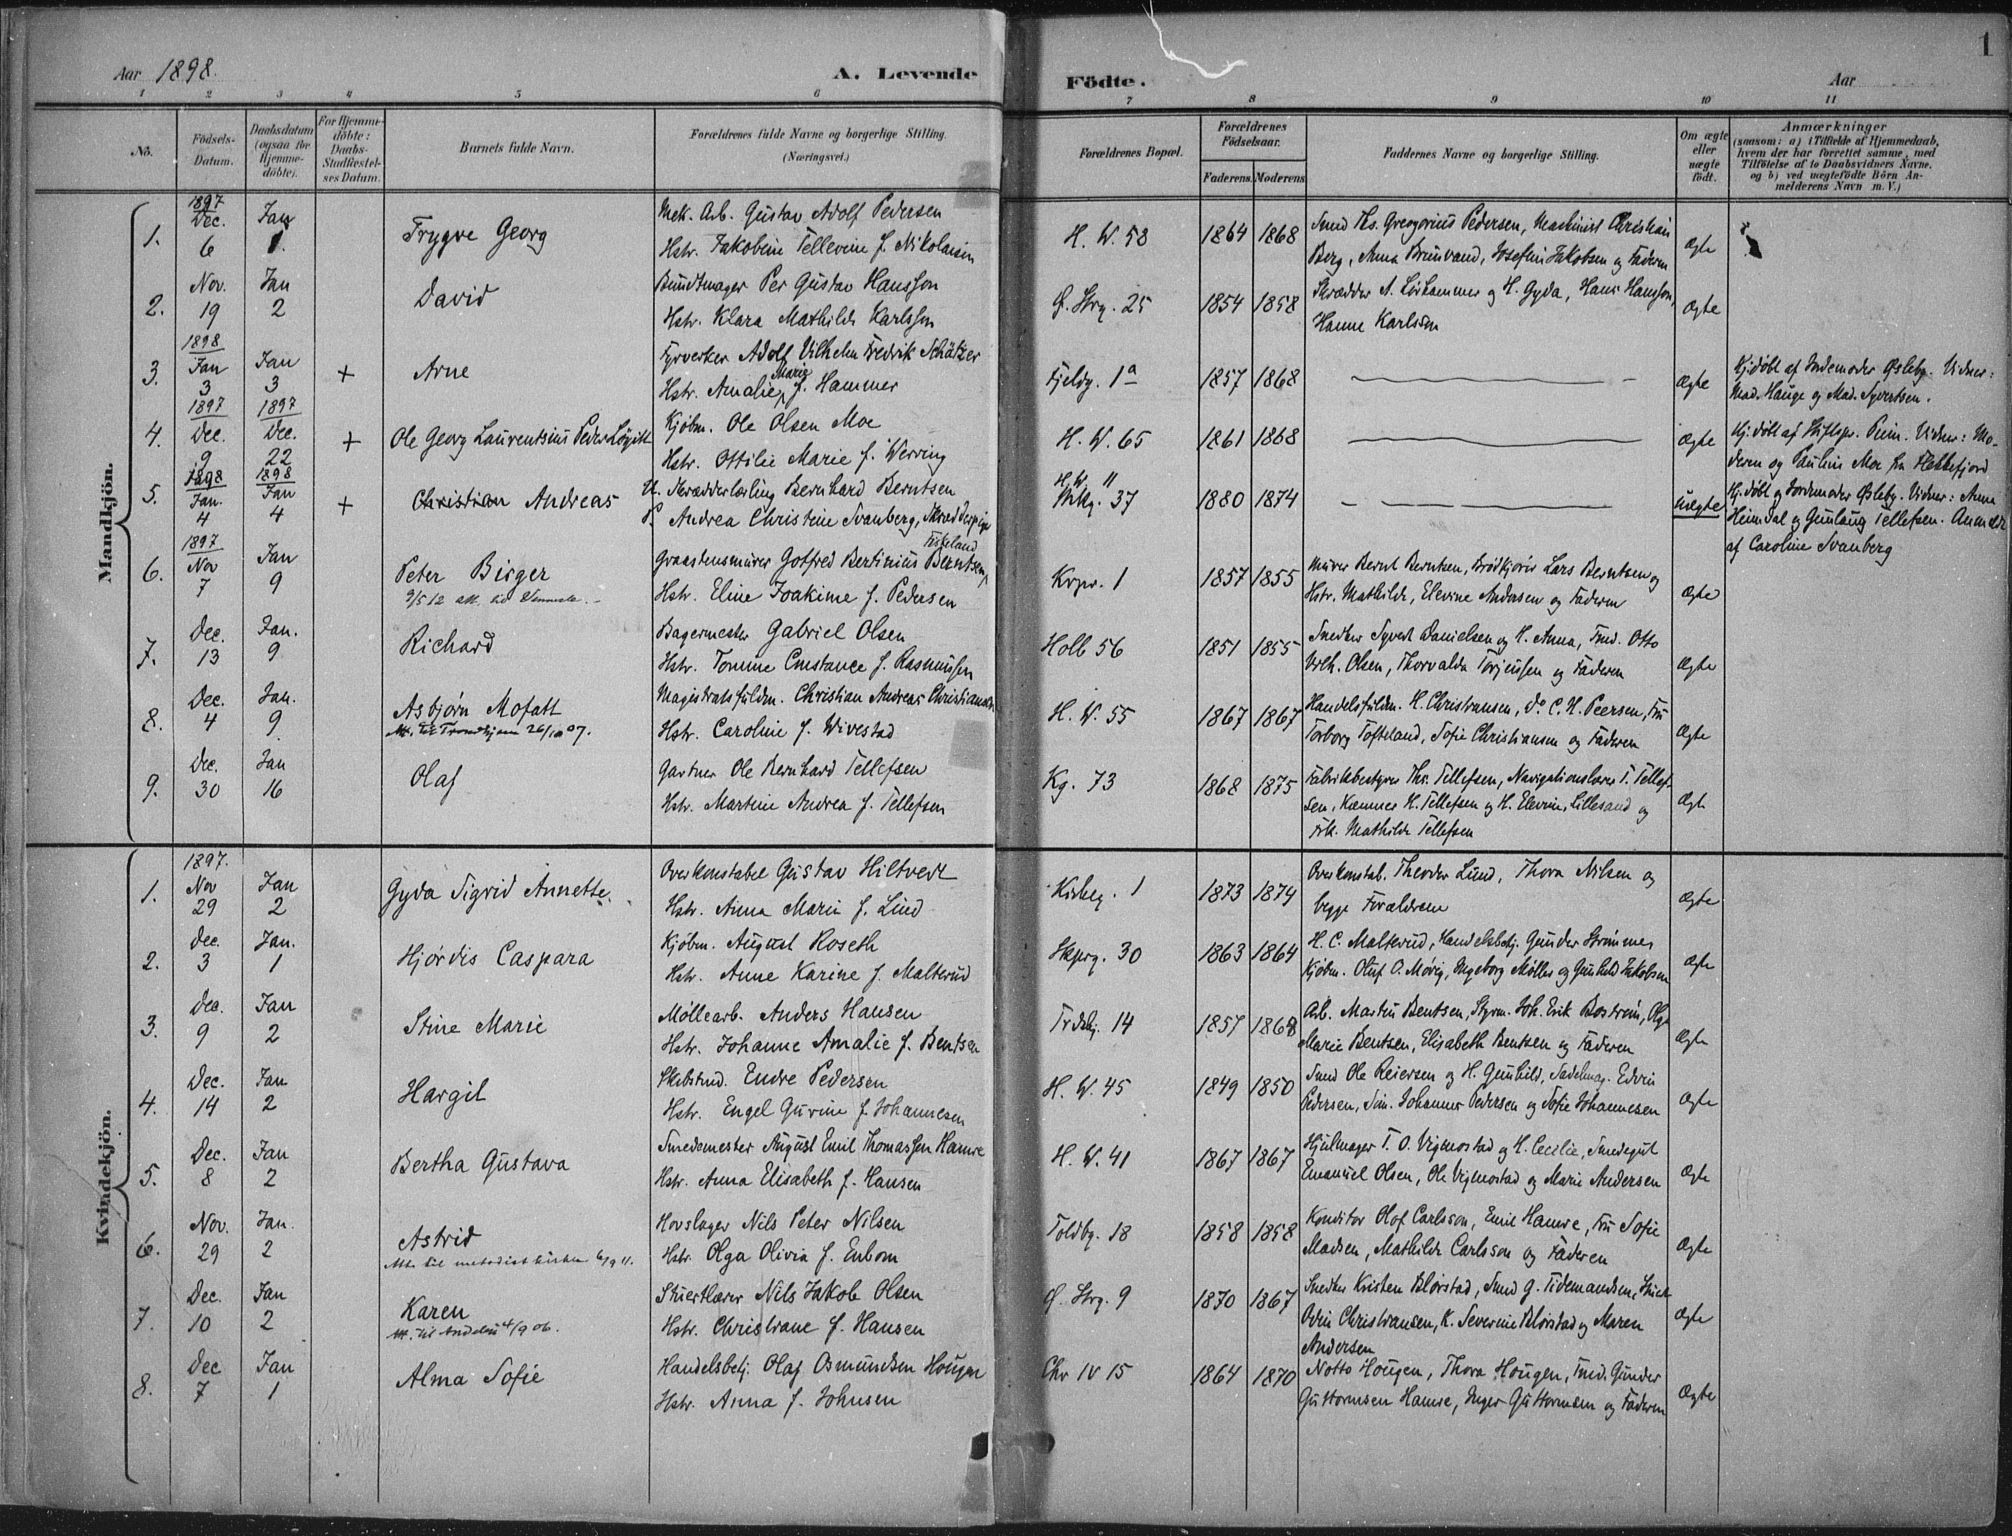 1
Aar 1898.
A. Levende
Födte.
Aar
1 2 3 4 5 6 7 8 9 10 11
Nö.
Födsels-Datum.
Daabsdatum (ogsaa for Hjemme-döbte).
For Hjemme-döbte: Daabs-Stadfæstel-ses Datum.
Barnets fulde Navn.
Forældrenes fulde Navne og borgerlige Stilling.
(Næringsvei.)
Forældrenes Bopæl.
Forældrenes Födselsaar.
Faderens. Moderens
Faddernes Navne og borgerlige Stilling.
Om ægte eller uægte födt.
Anmærkninger
(saasom: a) i Tilfælde af Hjemmedaab,
hvem der har forrettet samme, med
Tilföielse af to Daabsvidners Navne,
og b) ved uægtefödte Börn An-
melderens Navn m. V.)
Mandkjön.
1. 1897 Dec. 6 Jan 1. Trygve Georg
Mek. Arb. Gustav Adolf Pedersen
Hstr. Jakobine Tellevine f. Nikolaisen
H. W. 58 1864 1868
Smed Ths. Gregorius Pedersen, Maskinist Christian
Berg, Anna Brunvand, Josefine Jakobsen og Faderen
Ægte
2. Nov. 19 Jan 2 David
Bundtmager Per Gustav Hansson
Hstr. Klara Mathilde Karlsson
Ø. Strg. 25 1854 1858
Skrædder A. Löskammer og H. Gyda, Hans Hansson,
Hanne Karlsson
Ægte
3. 1898 Jan 3 Jan 3 + Arne
Fyrverker Adolf Vilhelm Fredrik Schätzer
Hstr. Amalie Marie f. Hammer
Fjeldg. 1a 1857 1868
Ægte
Hj.døbt af Jordemoder Øsleby. Vidner:
Mad. Hauge og Mad. Syvertsen.
4. 1897 Dec. 9 1897 Dec. 22 + Ole Georg Laurentsius Peder
Kjøbm. Ole Olsen Moe
Hstr. Ottilie Marie f. Werring
H. W. 65 1861 1868
Ægte
Hj.døbt af Stiftspr. Vidner: Mo-
deren og Pauline Moe fra Flekkefjord
5. 1898 Jan. 4 1898 Jan 4 + Christian Andreas
U. Skrædderlærling Bernhard Berntsen
P. Andrea Christine Svanberg,
H. W. 11
37 1880 1874
Uægte
Hj.døbt af Jordemoder Øsleby. Vidner: Anna
Heimdal og Gunlaug Tellefsen. Anmeldt
af Caroline Svanberg
6. 1897 Nov 7 Jan 9 Peter Birger
9/5 12 att. til Vennesla.
Graastensmurer Gotfred Bertinius Berntsen Fiskeland
Hstr. Eline Joakime f. Pedersen
Krpr. 1 1857 1855
Murer Bernt Berntsen, Brödkjörer Lars Berntsen og
Hstr. Mathilde, Elevine Andersen og Faderen
Ægte
7. Dec. 13 Jan. 9 Richard
Bagermester Gabriel Olsen
Hstr. Tomine Constance f. Rasmussen
Holb 56 1851 1855
Snedker Syvert Danielsen og H. Anna, Smd. Otto
Vilh. Olsen, Thorvalda Torjensen og Faderen
Ægte
8. Dec. 4 Jan. 9 Asbjørn Mofatt
Att. til Trondhjem 26/10 07.
Magistratsfuldm. Christian Andreas Christiansen
Hstr. Caroline f. Wivestad
H. W. 55 1867 1867
Handelsfuldm. H. Christiansen, do C. H. Peersen, Fru
Torborg Tofteland, Sofie Christiansen og Faderen
Ægte
9. Dec. 30 Jan 16 Olaf
Gartner Ole Bernhard Tellefsen
Hstr. Martine Andrea f. Tellefsen
Kg. 73 1868 1875
Fabrikbestyrer Ths. Tellefsen, Navigationslærer T. Tellef-
sen, Kæmner H. Tellefsen og H. Elevine, Lillesand og
Frk. Mathilde Tellefsen
Ægte
Kvindekjön.
1. 1897. Nov 29 Jan 2 Gyda Sigrid Annette.
Overkonstabel Gustav Hiltvedt
Hstr. Anna Marie f. Lund
Kirkeg. 1 1873 1874
Overkonstab. Theodor Lund, Thora Nilsen og
begge Forældrene
Ægte
2. Dec. 3 Jan. 1 Hjördis Caspara
Kjöbm. August Roseth
Hstr. Anne Karine f. Malterud
Skprg. 30 1863 1864
H. C. Malterud, Handelsbetj. Gunder Strömmes
Kjøbm. Oluf O. Mövig, Ingeborg Møller og Gunhild Jakobsen
Ægte
3. Dec. 9 Jan 2 Stine Marie
Møllearb. Anders Hansen
Hstr. Johanne Amalie f. Bentsen
Trdskj. 14 1857 1868
Arb. Martin Bentsen, Styrm. Joh. Erik Boström, Olga
Marie Bentsen, Elisabeth Bentsen og Faderen
Ægte
4. Dec. 14 Jan 2 Hargil
Skibstmd. Endre Pedersen
Hstr. Engel Gurine f. Johannesen
H. W. 45 1849 1850
Smed Ole Reiersen og H. Gunhild, Sadelmag. Edvin
Pedersen, Søm. Johannes Pedersen og Sofie Johannesen
Ægte
5. Dec. 8 Jan 2 Bertha Gustava
Smedemester August Emil Thomassen Hamre
Hstr. Anna Elisabeth f. Hansen
H. W. 41 1867 1867
Hjulmager T. O. Vigmostad og H. Cecilie, Smedegut
Emanuel Olsen, Ole Vigmostad og Marie Andersen
Ægte
6. Nov. 29 Jan. 2 Astrid
Att. til metodistkirken 6/9 11.
Hovslager Nils Peter Nilsen
Hstr. Olga Olivia f. Enbom
Toldbg. 18 1858 1858
Konditor Olof Carlsson, Emil Hamre, Fru Sofie
Madsen, Mathilde Carlsson og Faderen
Ægte
7. Dec. 10 Jan 2 Karen
Att. til Andebu 4/9 06.
Skuertlærer Nils Jakob Olsen
Hstr. Christiane f. Hansen
Ø. Strg. 9 1870 1867
Snedker Kristen Blörstad, Smed G. Tidemandsen,
Odin Christiansen, K. Severine Blörstad og Maren
Andersen
Ægte
8. Dec 7 Jan 1 Alma Sofie
Handelsbetj. Olaf Osmundsen Hougen
Hstr. Anna f. Johnsen
Chr IV 15 1864 1870
Notto Hougen, Thora Hougen, Smd. Gunder
Guttormsen Hamre, Inger Guttormsen og Faderen
Ægte